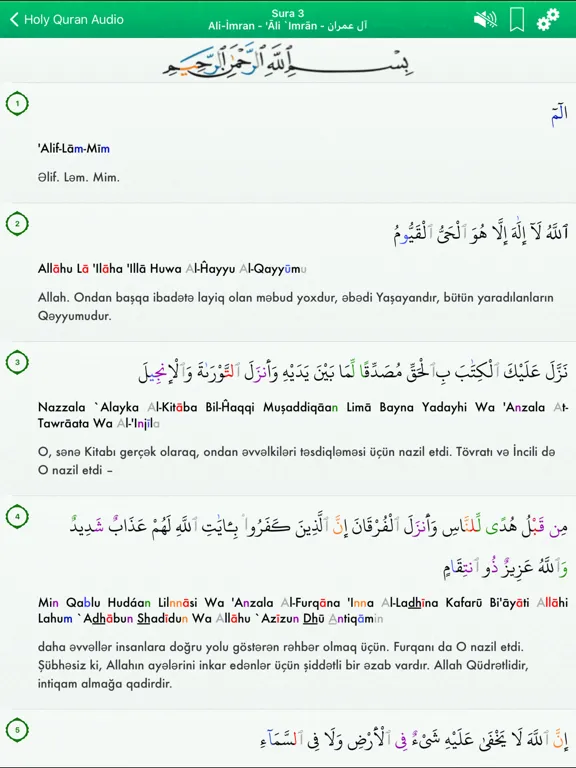 Holy Quran Audio
Sura 3
Ali-İmran - 'Āli `Imrān - آل عمران
بِسْمِ ٱللَّهِ ٱلرَّحْمَٰنِ ٱلرَّحِيمِ
1
الٓمٓ
'Alif-Lām-Mīm
Əlif. Ləm. Mim.
2
ٱللَّهُ لَآ إِلَٰهَ إِلَّا هُوَ ٱلْحَىُّ ٱلْقَيُّومُ
Allāhu Lā 'Ilāha 'Illā Huwa Al-Ĥayyu Al-Qayyūmu
Allah. Ondan başqa ibadətə layiq olan məbud yoxdur, əbədi Yaşayandır, bütün yaradılanların
Qəyyumudur.
3
نَزَّلَ عَلَيْكَ ٱلْكِتَٰبَ بِٱلْحَقِّ مُصَدِّقًا لِّمَا بَيْنَ يَدَيْهِ وَأَنزَلَ ٱلتَّوْرَىٰةَ وَٱلْإِنجِيلَ
Nazzala `Alayka Al-Kitāba Bil-Ĥaqqi Muşaddiqāan Limā Bayna Yadayhi Wa 'Anzala At-
Tawrāata Wa Al-'Injīla
O, sənə Kitabı gerçək olaraq, ondan əvvəlkiləri təsdiqləməsi üçün nazil etdi. Tövratı və İncili də
O nazil etdi –
4
مِن قَبْلُ هُدًى لِّلنَّاسِ وَأَنزَلَ ٱلْفُرْقَانَ إِنَّ ٱلَّذِينَ كَفَرُوا۟ بِـَٔايَٰتِ ٱللَّهِ لَهُمْ عَذَابٌ شَدِيدٌ
وَٱللَّهُ عَزِيزٌ ذُو ٱنتِقَامٍ
Min Qablu Hudáan Lilnnāsi Wa 'Anzala Al-Furqāna 'Inna Al-Ladhīna Kafarū Bi'āyāti Allāhi
Lahum `Adhābun Shadīdun Wa Allāhu `Azīzun Dhū Antiqāmin
daha əvvəllər insanlara doğru yolu göstərən rəhbər olmaq üçün. Furqanı da O nazil etdi.
Şübhəsiz ki, Allahın ayələrini inkar edənlər üçün şiddətli bir əzab vardır. Allah Qüdrətlidir,
intiqam almağa qadirdir.
5
إِنَّ ٱللَّهَ لَا يَخْفَىٰ عَلَيْهِ شَىْءٌ فِى ٱلْأَرْضِ وَلَا فِى ٱلسَّمَآءِ